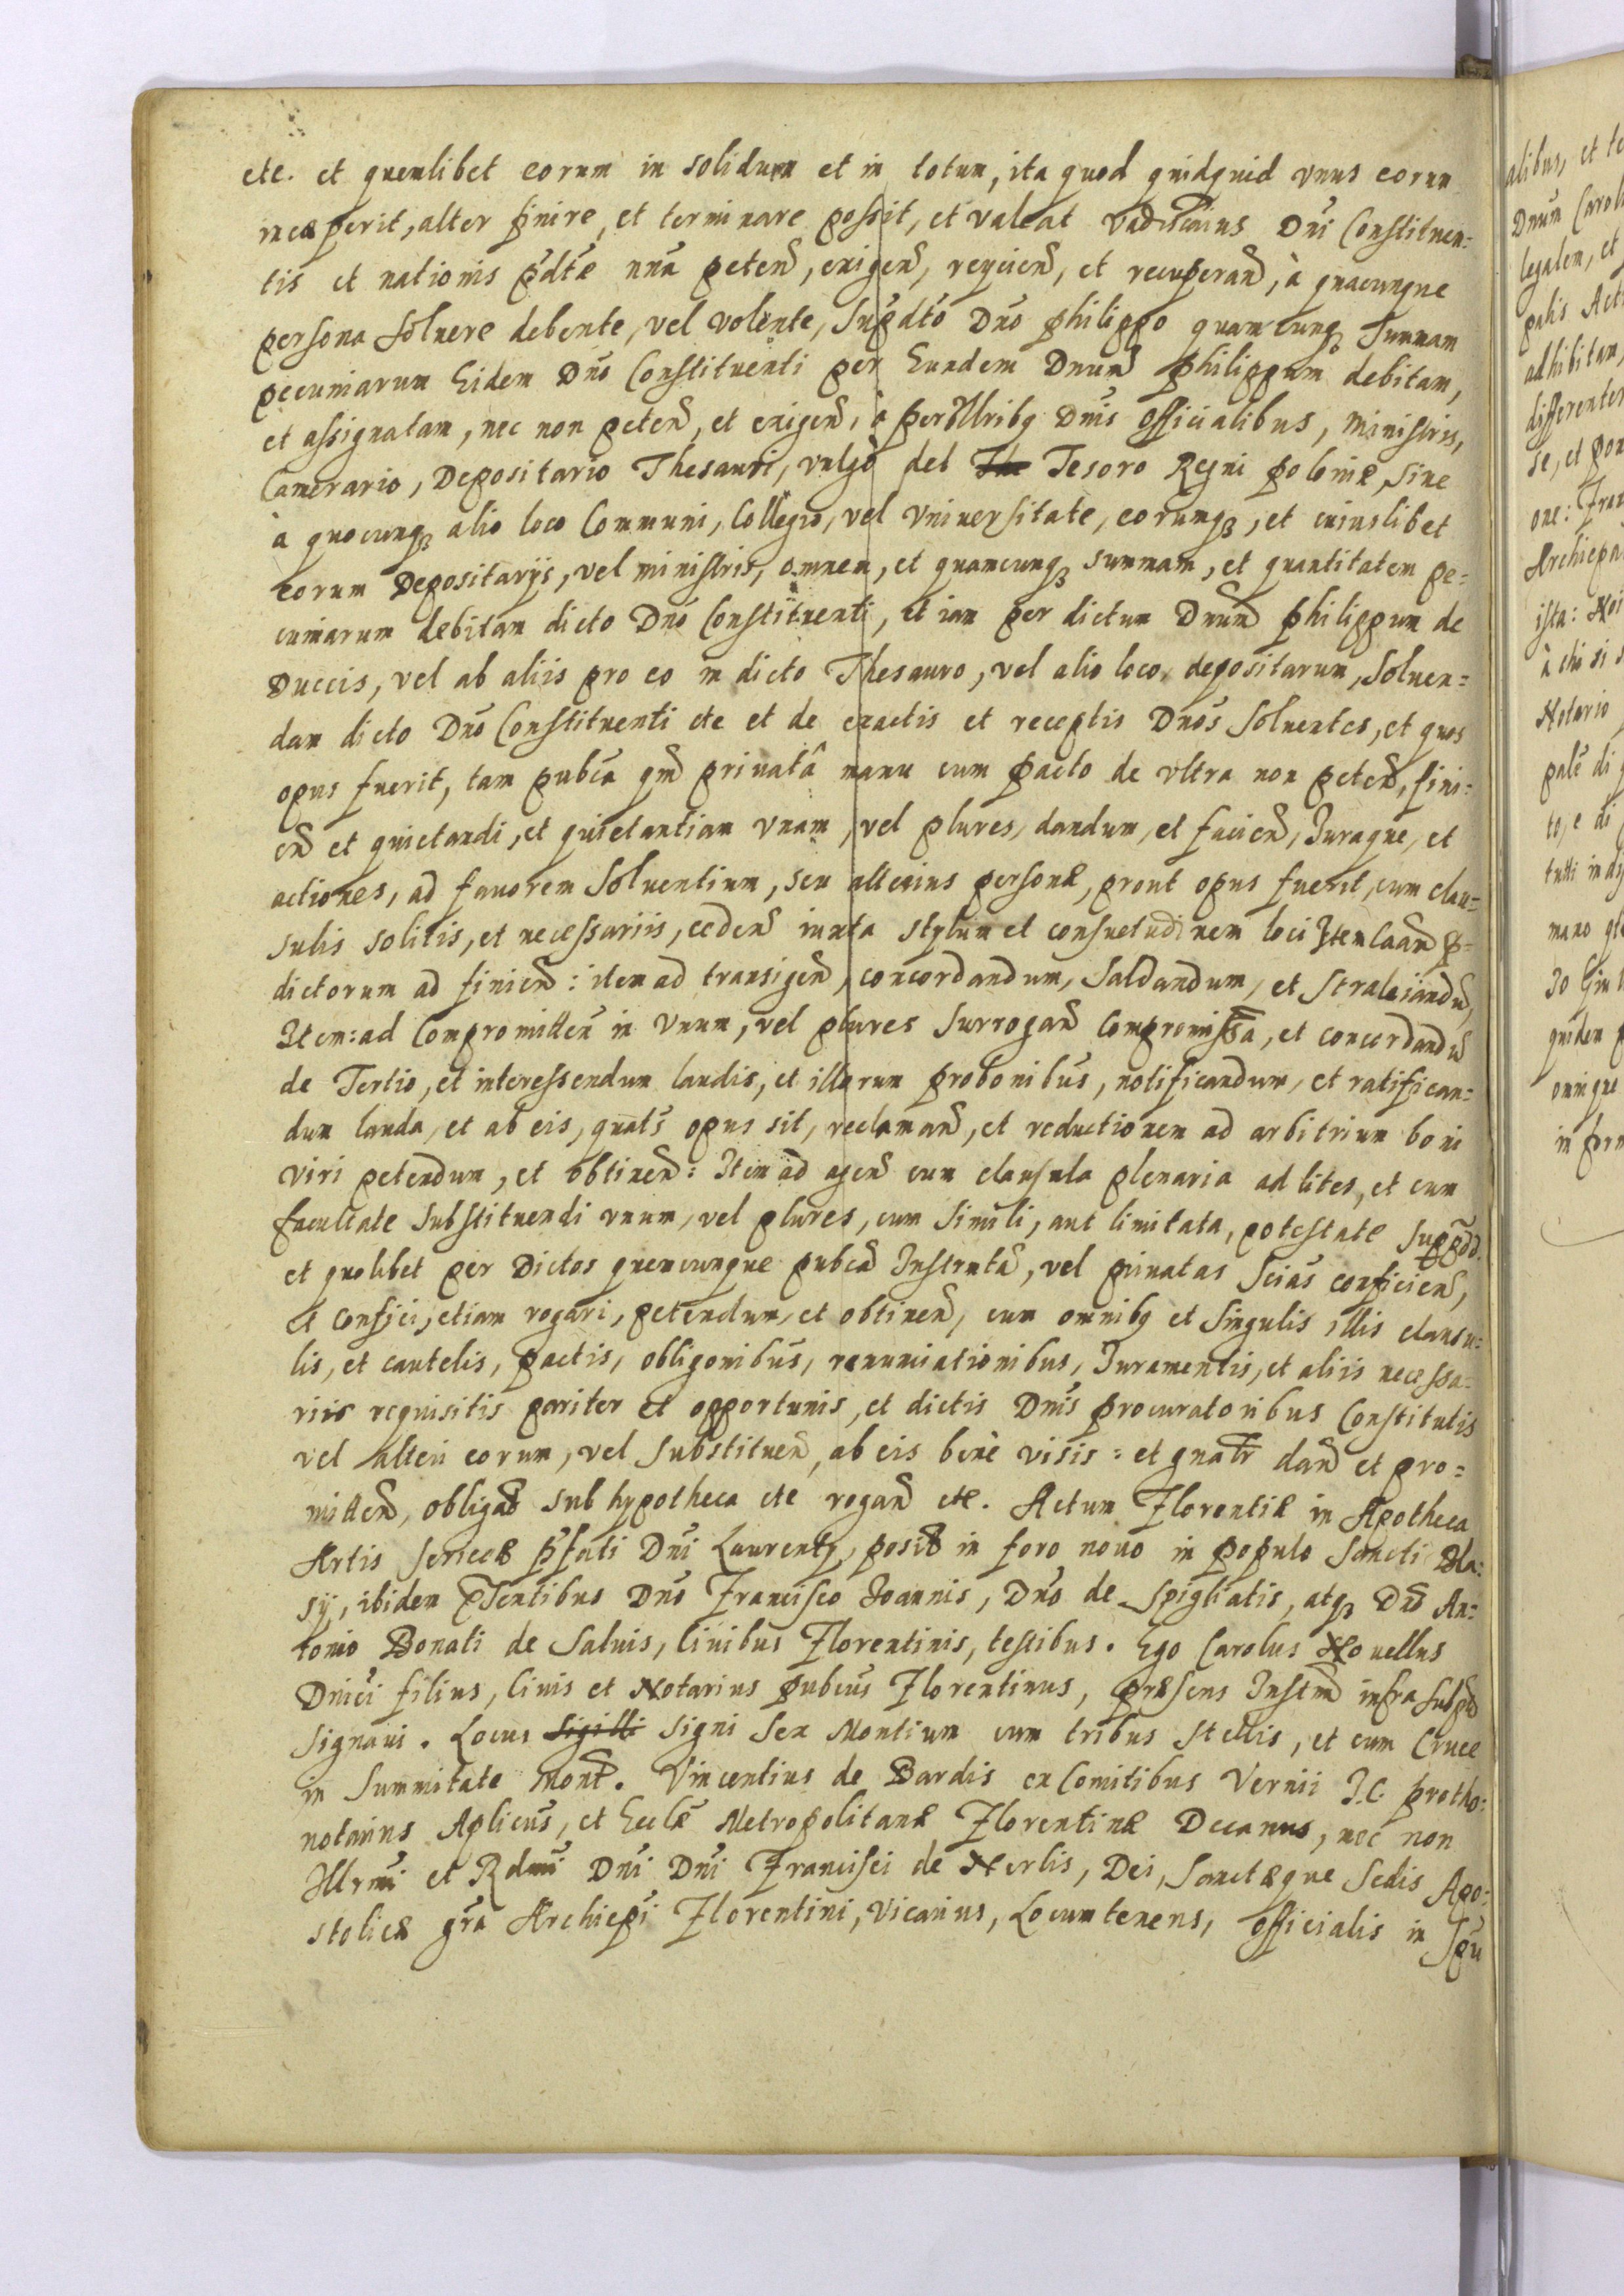 etc. et quemlibet eorum in solidum et in totum, ita quod quidquid vnus eorum
inceperit, alter finire, et terminare possit, et valeat Dñi Constituen=
tis et nationis pd̃tæ petend̃, exigend̃, reycienď, et recuperand̃, à quacunque
persona soluere debente, vel volente, supd̃to Dño Philippo quamcunq3 summam
pecuniarum Eidem Dño Constituenti per Eundem Dnum̃ Philippum debitam,
et assignatam, nec non petend̃, et exigend̃, à perIllribq Dñis Officialibus, Ministris,
Camerario, Depositario Thesauri, vulgò del Tesoro Regni Poloniæ, siue
à quocunq3 alio loco Communi, Collegio, vel Vniuersitate, eorumq3, et cuiuslibet
eorum Depositarijs, vel ministris, omnem, et quamcunq3 summam, et quantitatem pe=
cuniarum debitam dicto Dño Constituenti, et iam per dictum Dnum̃ Philippum de
Duccis, vel ab aliis pro eo in dicto Thesauro, vel alio loco, depositarum, soluen=
dam dicto Dño Constituenti etc et de exactis et receptis Dños soluentes, et quos
opus fuerit, tam pubca͂ qm̃ priuatâ manu cum pacto de vltra non petend̃, fini=
end̃ et quietandi, et quietantiam vnam, vel plures, dandum, et faciend̃, Juraque, et
actiones, ad fauorem soluentium, seu alterius personæ, prout opus fuerit, cum clau=
sulis solitis, et necessariis, cedend̃ iuxta stylum et consuetudinem loci Item p=
dictorum ad finiend̃: item ad transigend̃, concordandum, saldandum, et stralciandũ,
Item: ad Compromittend̃ in Vnum, vel plures surrogand̃ Compromissa, et concordandũ
de Tertio, et interessendum laudis, et illarum probonibus, notificandum, et ratifican=
dum lauda, et ab eis, quats̃ opus sit, reclamand̃, et reductionem ad arbitrium boni
viri petendum, et obtinend̃: Item ad agend̃ cum clausula plenaria ad lites, et cum
facultate substituendi vnum, vel plures, cum simili, aut limitata, potestate
et quolibet per Dictos quencunque pubca͂ Instrutã, vel priuatas Sc̃ias conficiend̃,
et confici, etiam rogari, petendum, et obtinend̃, cum omnibq et singulis illis clausu=
lis, et cautelis, pactis, obligonibus̃, renuntiationibus, Juramentis, et aliis necessa=
riis requisitis pariter et opportunis, et dictis Dñis Procuratoribus Constitutis
vel alteri eorum, vel substituend̃, ab eis benè visis: et gnalr̃ dand̃ et pro=
mittend̃, obligand̃ sub hypotheca etc rogand̃ etc. Actum Florentiæ in Apotheca
Artis sericeæ p̃fati Dñi Laurentij, posita in foro nouo in populo Sancti Bla=
sij, ibidem p̃sentibus Dño Francisco Joannis, Dño de Spigliatis, atq3 Dño An=
tonio Donati de Saluis, Ciuibus Florentinis, testibus. Ego Carolus Nouellus
Dñici filius, Ciuis et Notarius pubcus̃ Florentinus, præsens Instm̃ infra
signaui. Locus sigilli signi sex Montium cum tribus stellis, et cum Cruce
in summitate Mont̃. Vincentius de Bardis ex Comitibus Vernii J.C. Protho=
notarius Aplicus̃, et Eccl̃æ Metropolitanæ Florentinæ Decanus, nec non
Illrm̃i et Rdm̃i Dñi Dñi Francisci de Nerlis, Dei, Sanctæque Sedis Apo=
stolicæ gr̃a Archiepĩ Florentini, Vicarius, Locumtenens, Officialis in Spũ